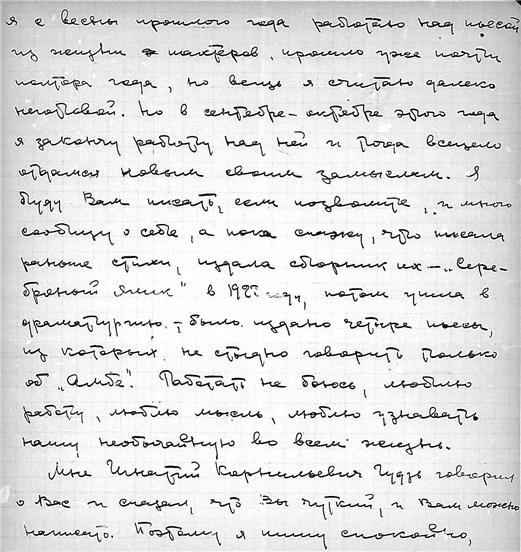 я с весны прошлого года работаю над пьесой
из жизни шахтеров, прошло уже почти
полтора года, но вещь я считаю далеко
неготовой. Но в сентябре-октябре этого года
я закончу работу над ней и тогда всецело
отдамся новым своим замыслам. Я
буду Вам писать, если позволите, и много
сообщу о себе, а пока скажу, что писала
раньше стихи, издала сборник их — „Сере-
бряный ящик" в году, потом ушла в
драматургию — было издано четыре пьесы,
из которых не стыдно говорить только
об „Алмбе". Работать не боюсь, люблю
работу, люблю мысль, люблю узнавать
нашу необычайную во всем жизнь.
Мне Игнатий Корнильевич Гудзь говорил
о Вас и сказал, что Вы чуткий, и Вам можно
написать. Поэтому я пишу спокойно,